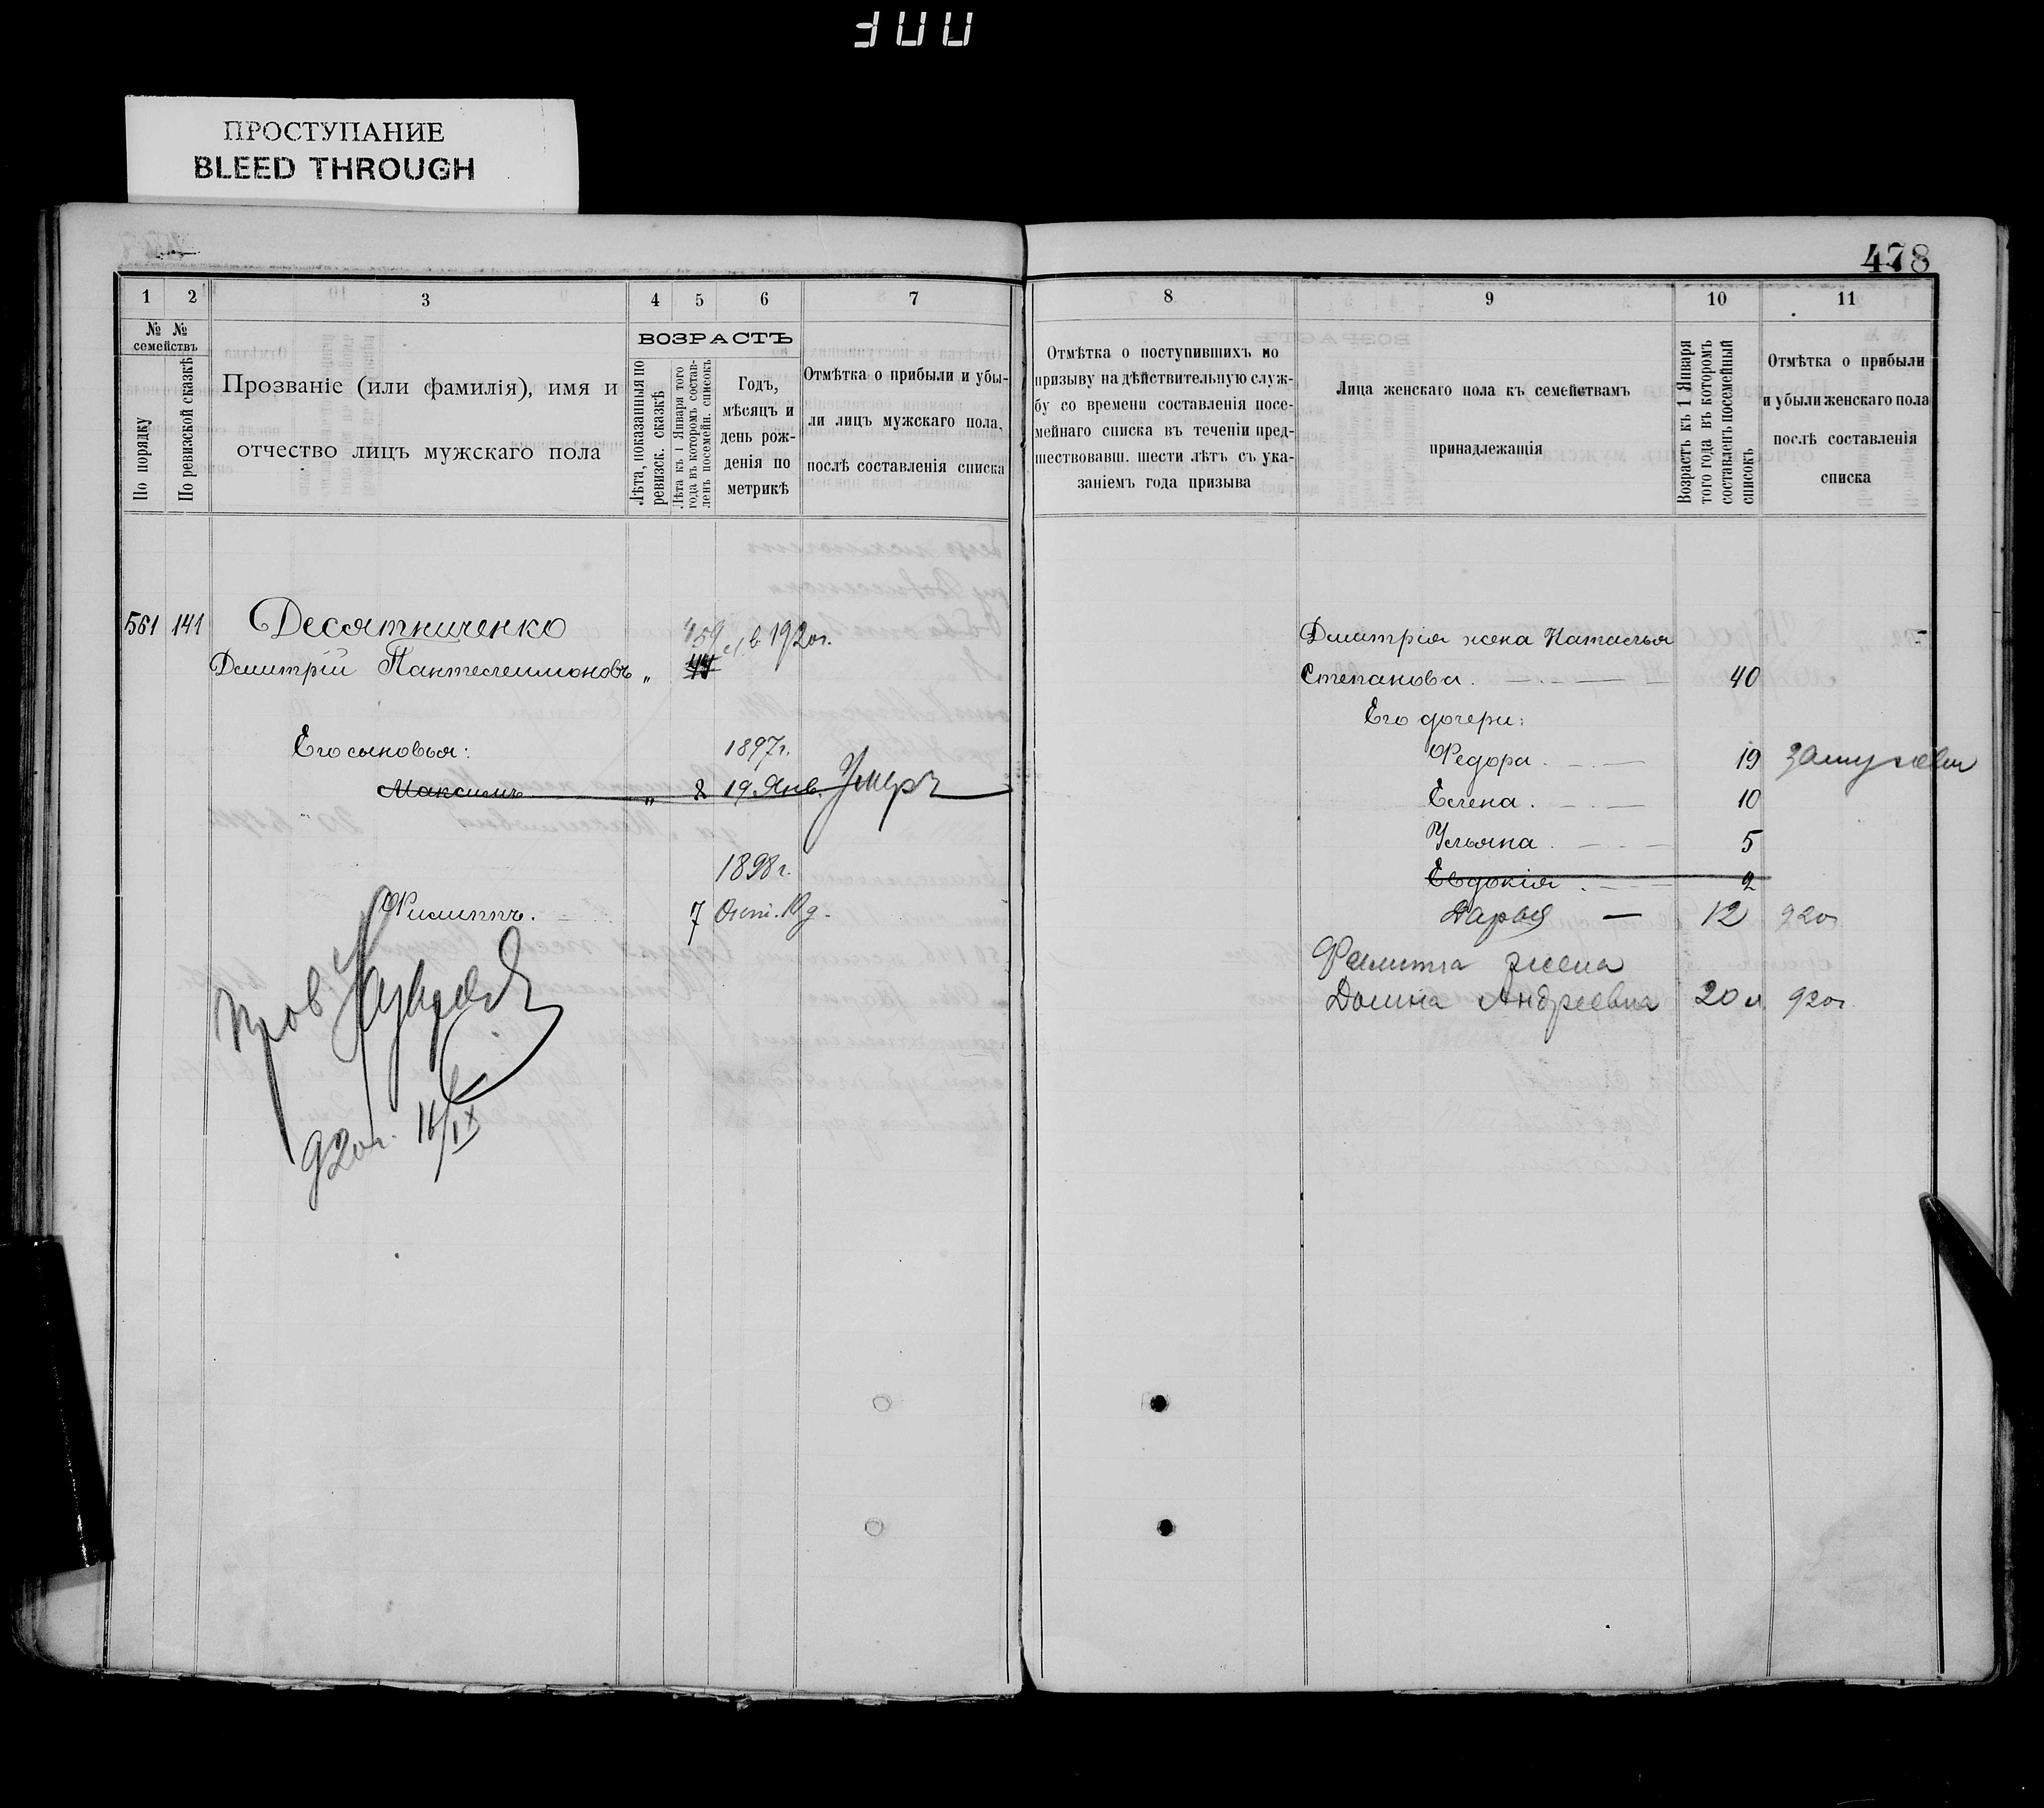 300
ПРОСТУПАНИЕ
BLEED THROUGH
478
1 2 3 4 5 6 7
№ №
семействъ
По порядку
По ревизской сказкѣ
Прозваніе (или фамилія), имя и
отчество лицъ мужскаго пола
ВОЗРАСТЪ
Лѣта, показанныя по
ревизск. сказкѣ
Лѣта къ 1 Января того
года въ которомъ состав-
ленъ посемейн. списокъ
Годъ,
мѣсяцъ и
день рож-
денія по
метрикѣ
Отмѣтка о прибыли и убы-
ли лицъ мужскаго пола,
послѣ составленія списка
561 141 Десятниченко
59 л. в 1920г.
Дмитрій Пантелеимоновъ „ 44
Его сыновья: 1897г.
Максимъ „ 8 19 Янв. Умеръ
1898г.
Филиппъ. 7 Окт. 10 д.
Пров
920г. 16/IX
8 9 10 11
Отмѣтка о поступившихъ по
призыву на дѣйствительную служ-
бу со времени составленія посе-
мейнаго списка въ теченіи пред-
шествовавш. шести лѣтъ съ ука-
заніемъ года призыва
Лица женскаго пола къ семействамъ
принадлежащія
Возрастъ къ 1 Января
того года въ которомъ
составленъ посемейный
списокъ
Отмѣтка о прибыли
и убыли женскаго пола
послѣ составленія
списка
Дмитрія жена Наталья
Степанова. 40
Его дочери:
Федора. 19 замужем
Елена. 10
Ульяна. 5
Евдокія. 2
Дарья — 12 920г
Филиппа жена
Домна Андреевна 20 л 920г.